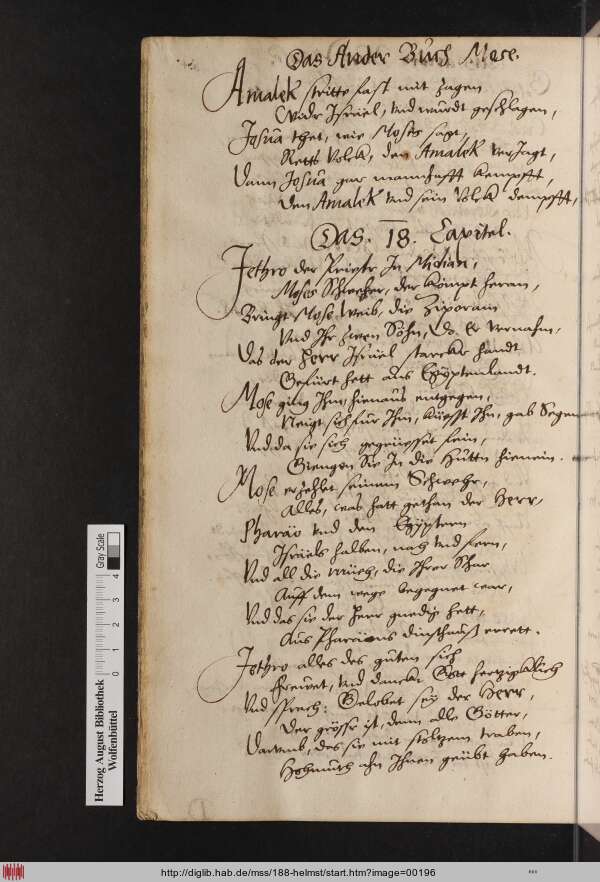 Das Ander Buch Mose.
Amalek stritte fast mit zagen
Widr Israel, vnd wurdt geschlagen,
Josua thet, wie Moses sagt,
Rotts Volck, den Amalek verJagt,
Dann Josua gar mannhafft kempfft,
Den Amalek vnd sein Volck dempfft,
Das. 18. Capitel.
Jethro der Priestr In Midian,
Moses Schweher, der kömpt heran,
Bringt Mose Weib, die Ziporam
Vnd Ihr zwen Söhn, do Er vernahm,
Das der Herr Israel starcke handt
Gefürt hett aus Egÿptenlandt.
Mose ging Ihm, hienaus entgegen,
Neigt sich für Ihm, küsst Ihn, gab Segen
Vnd, da sie sich gegrüesset fein,
Giengen Sie In die Hüttn hienein.
Mose erzehlet seinem Schwehr,
Alles, was hatt gethan der Herr,
Pharäo vnd den Egÿptern
Israels halben, nah vnd fern,
Vnd all die müeh, die Ihrer Schar
Auff dem wege begegnet war,
Vnd das sie der Herr gnedig hett,
Aus Pharäons dinsthauß errett.
Jethro alles des guten sich
frewet, vnd danckt Gott hertzigklich
Vnd sprach: Gelobet seÿ der Herr,
Der grösser ist, dann alle Götter,
Darumb, das sie mit stoltzem traben,
Hohmuth ahn Ihnen geübt haben.
Herzog August Bibliothek
Wolfenbüttel
Gray Scale
0 1 2 3 4
http://diglib.hab.de/mss/188-helmst/start.htm?image=00196